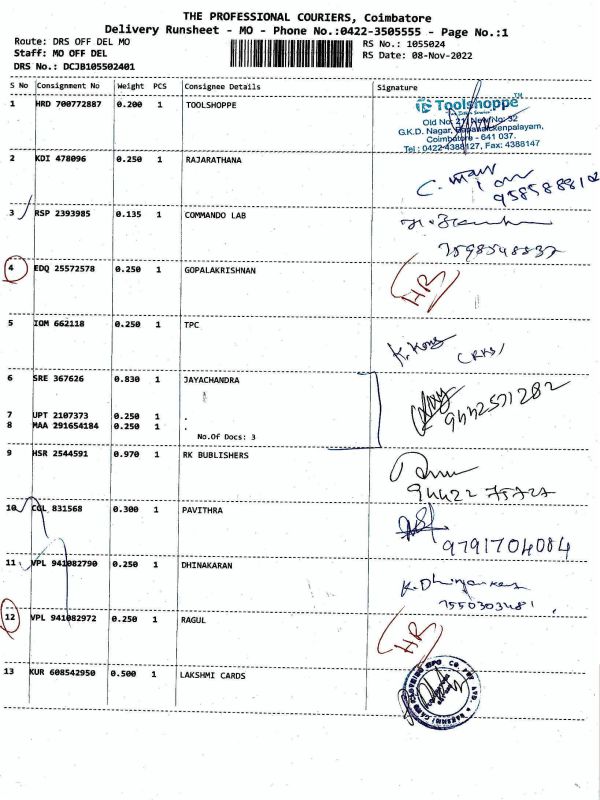 THE PROFESSIONAL COURIERS, Coimbatore
Delivery Runsheet - MO - Phone No.:0422-3505555 - Page No.:1
Route: DRS OFF DEL MO
Staff: MO OFF DEL
DRS No.: DCJB105502401
RS No.: 1055024
RS Date: 08-Nov-2022
S No Consignment No Weight PCS Consignee Details Signature
1 HRD 700772887 0.200 1 TOOLSHOPPE
Toolshoppe
Old No: 21, New No: 32
G.K.D. Nagar, Pappanaickenpalayam,
Coimbatore - 641 037.
Tel : 0422-4388127, Fax: 4388147
2 KDI 478096 0.250 1 RAJARATHANA
C. Mani
3 RSP 2393985 0.135 1 COMMANDO LAB
7598548837
4 EDQ 25572578 0.250 1 GOPALAKRISHNAN
HR
5 IOM 662118 0.250 1 TPC
(RKS)
6 SRE 367626 0.830 1 JAYACHANDRA
9442571282
7 UPT 2107373 0.250 1 .
8 MAA 291654184 0.250 1 .
No.Of Docs: 3
9 HSR 2544591 0.970 1 RK BUBLISHERS
10 CGL 831568 0.300 1 PAVITHRA
9791704084
11 VPL 941082790 0.250 1 DHINAKARAN
K. Dhinakaran
7550303481
12 VPL 941082972 0.250 1 RAGUL
HR
13 KUR 608542950 0.500 1 LAKSHMI CARDS